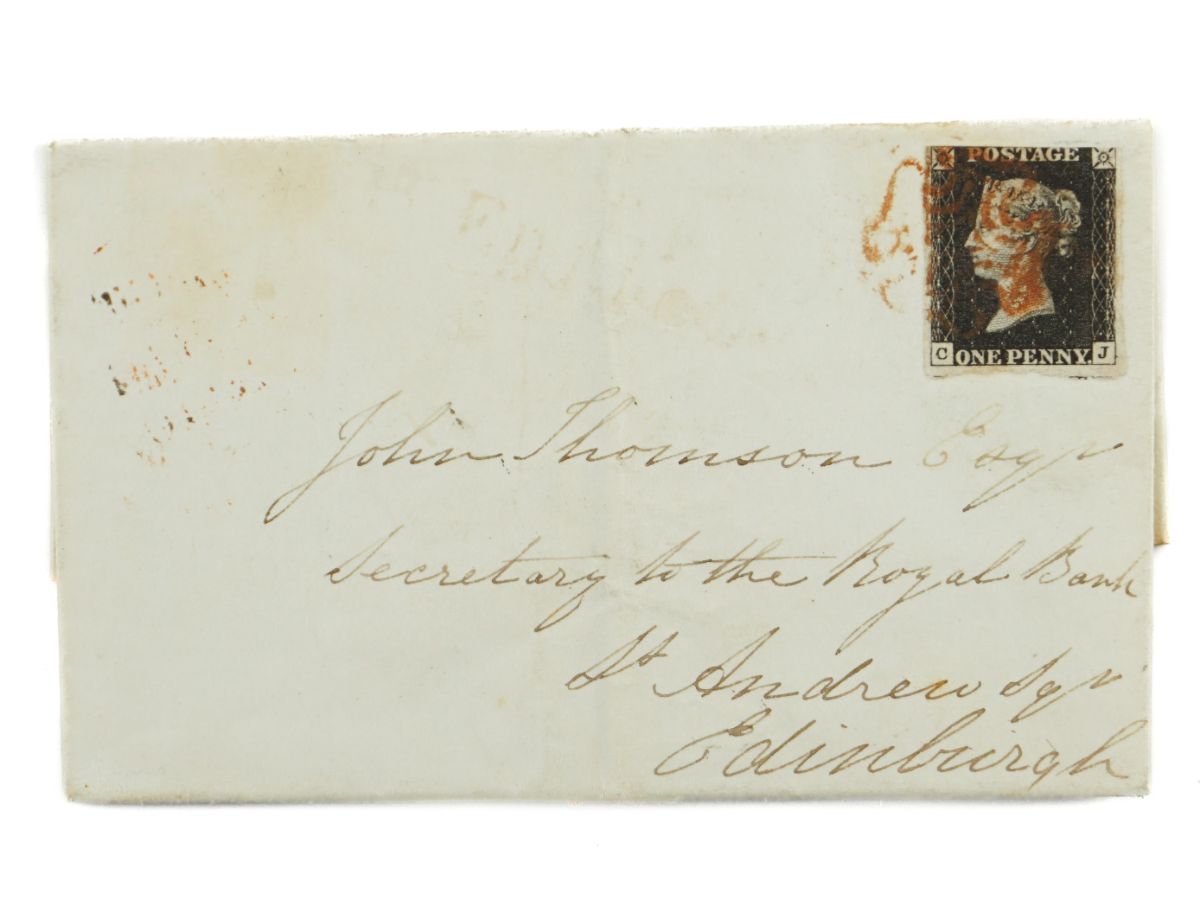 POSTAGE
C ONE PENNY. J
John Thomson Esqr
Secretary to the Royal Bank
St Andrew Sqr
Edinburgh